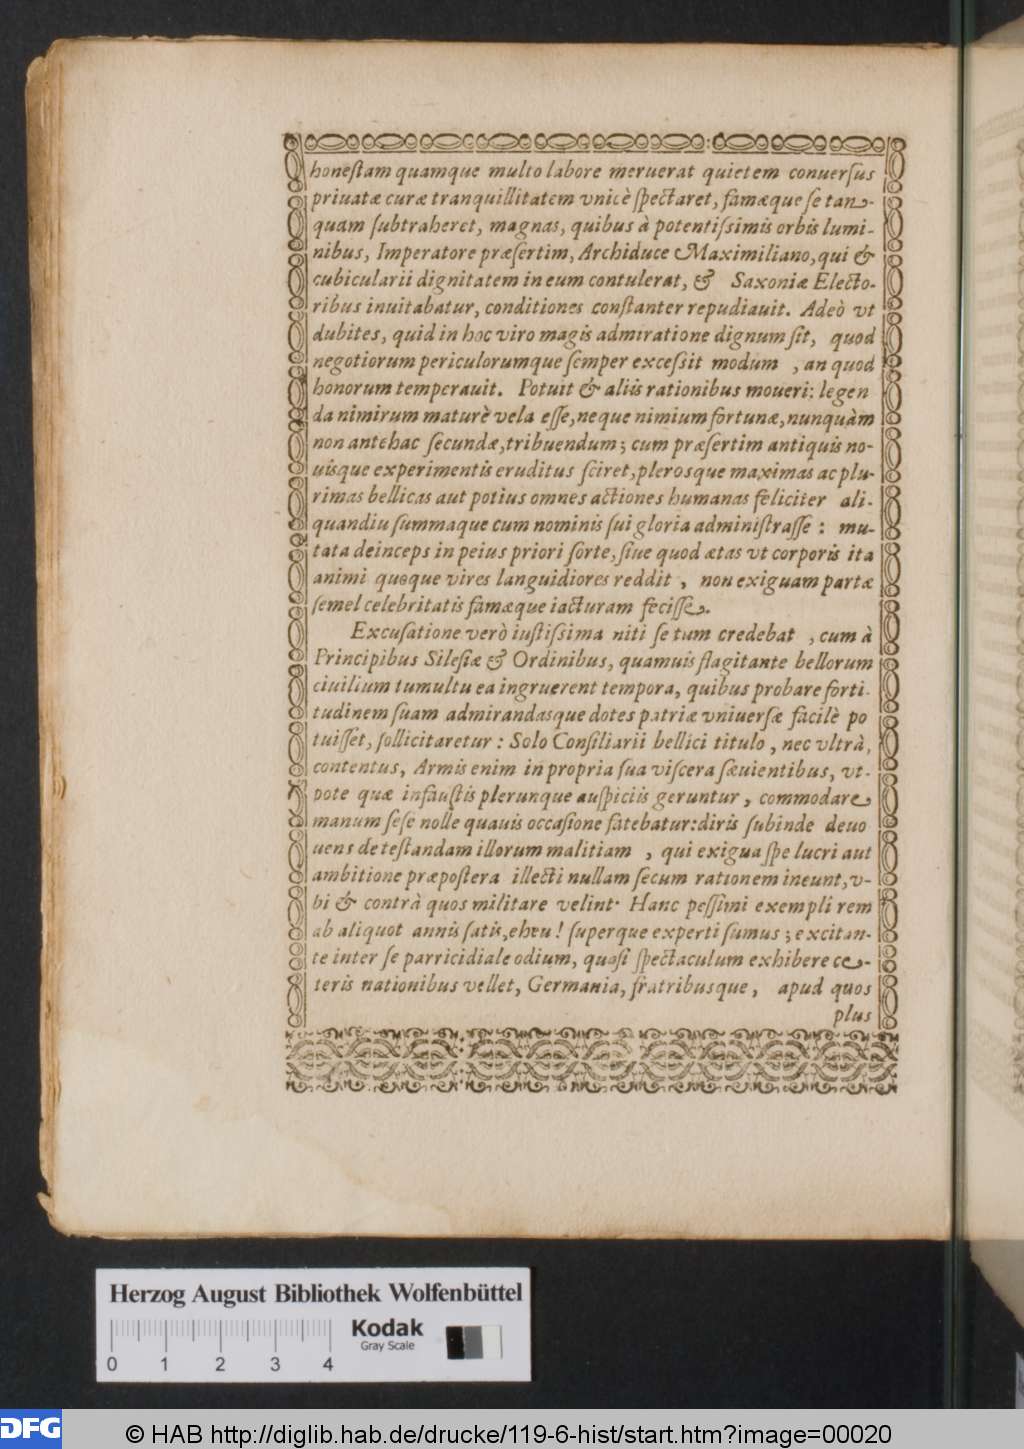 honeſtam quamque multo labore meruerat quietem conuerſus
priuatæ curæ tranquillitatem vnicè ſpectaret, famæque ſe tan-
quam ſubtraheret, magnas, quibus à potentiſsimis orbis lumi-
nibus, Imperatore præſertim, Archiduce Maximiliano, qui &
cubicularii dignitatem in eum contulerat, & Saxoniæ Electo-
ribus inuitabatur, conditiones conſtanter repudiauit. Adeò vt
dubites, quid in hoc viro magis admiratione dignum ſit, quod
negotiorum periculorumque ſemper exceſsit modum , an quod
honorum temperauit. Potuit & aliis rationibus moueri: legen
da nimirum maturè vela eſſe, neque nimium fortunæ, nunquàm
non antehac ſecundæ, tribuendum; cum præſertim antiquis no-
uisque experimentis eruditus ſciret, plerosque maximas ac plu-
rimas bellicas aut potius omnes actiones humanas feliciter ali-
quandiu ſummaque cum nominis ſui gloria adminiſtraſſe : mu-
tata deinceps in peius priori ſorte, ſiue quod ætas vt corporis ita
animi quoque vires languidiores reddit , non exiguam partæ
ſemel celebritatis famæque iacturam feciſſe.
Excuſatione verò iuſtiſsima niti ſe tum credebat , cum à
Principibus Sileſiæ & Ordinibus, quamuis flagitante bellorum
ciuilium tumultu ea ingruerent tempora, quibus probare forti-
tudinem ſuam admirandasque dotes patriæ vniuerſæ facilè po
tuiſſet, ſollicitaretur : Solo Conſiliarii bellici titulo , nec vltrà,
contentus, Armis enim in propria ſua viſcera ſæuientibus, vt-
pote quæ infauſtis plerunque auſpiciis geruntur , commodare
manum ſeſe nolle quauis occaſione fatebatur: diris ſubinde deuo
uens deteſtandam illorum malitiam , qui exigua ſpe lucri aut
ambitione præpoſtera illecti nullam ſecum rationem ineunt, v-
bi & contrà quos militare velint· Hanc peſſimi exempli rem
ab aliquot annis ſatis, eheu! ſuperque experti ſumus ; excitan-
te inter ſe parricidiale odium, quaſi ſpectaculum exhibere ce-
teris nationibus vellet, Germania, fratribusque , apud quos
plus
Herzog August Bibliothek Wolfenbüttel
Kodak
Gray Scale
0 1 2 3 4
DFG © HAB http://diglib.hab.de/drucke/119-6-hist/start.htm?image=00020